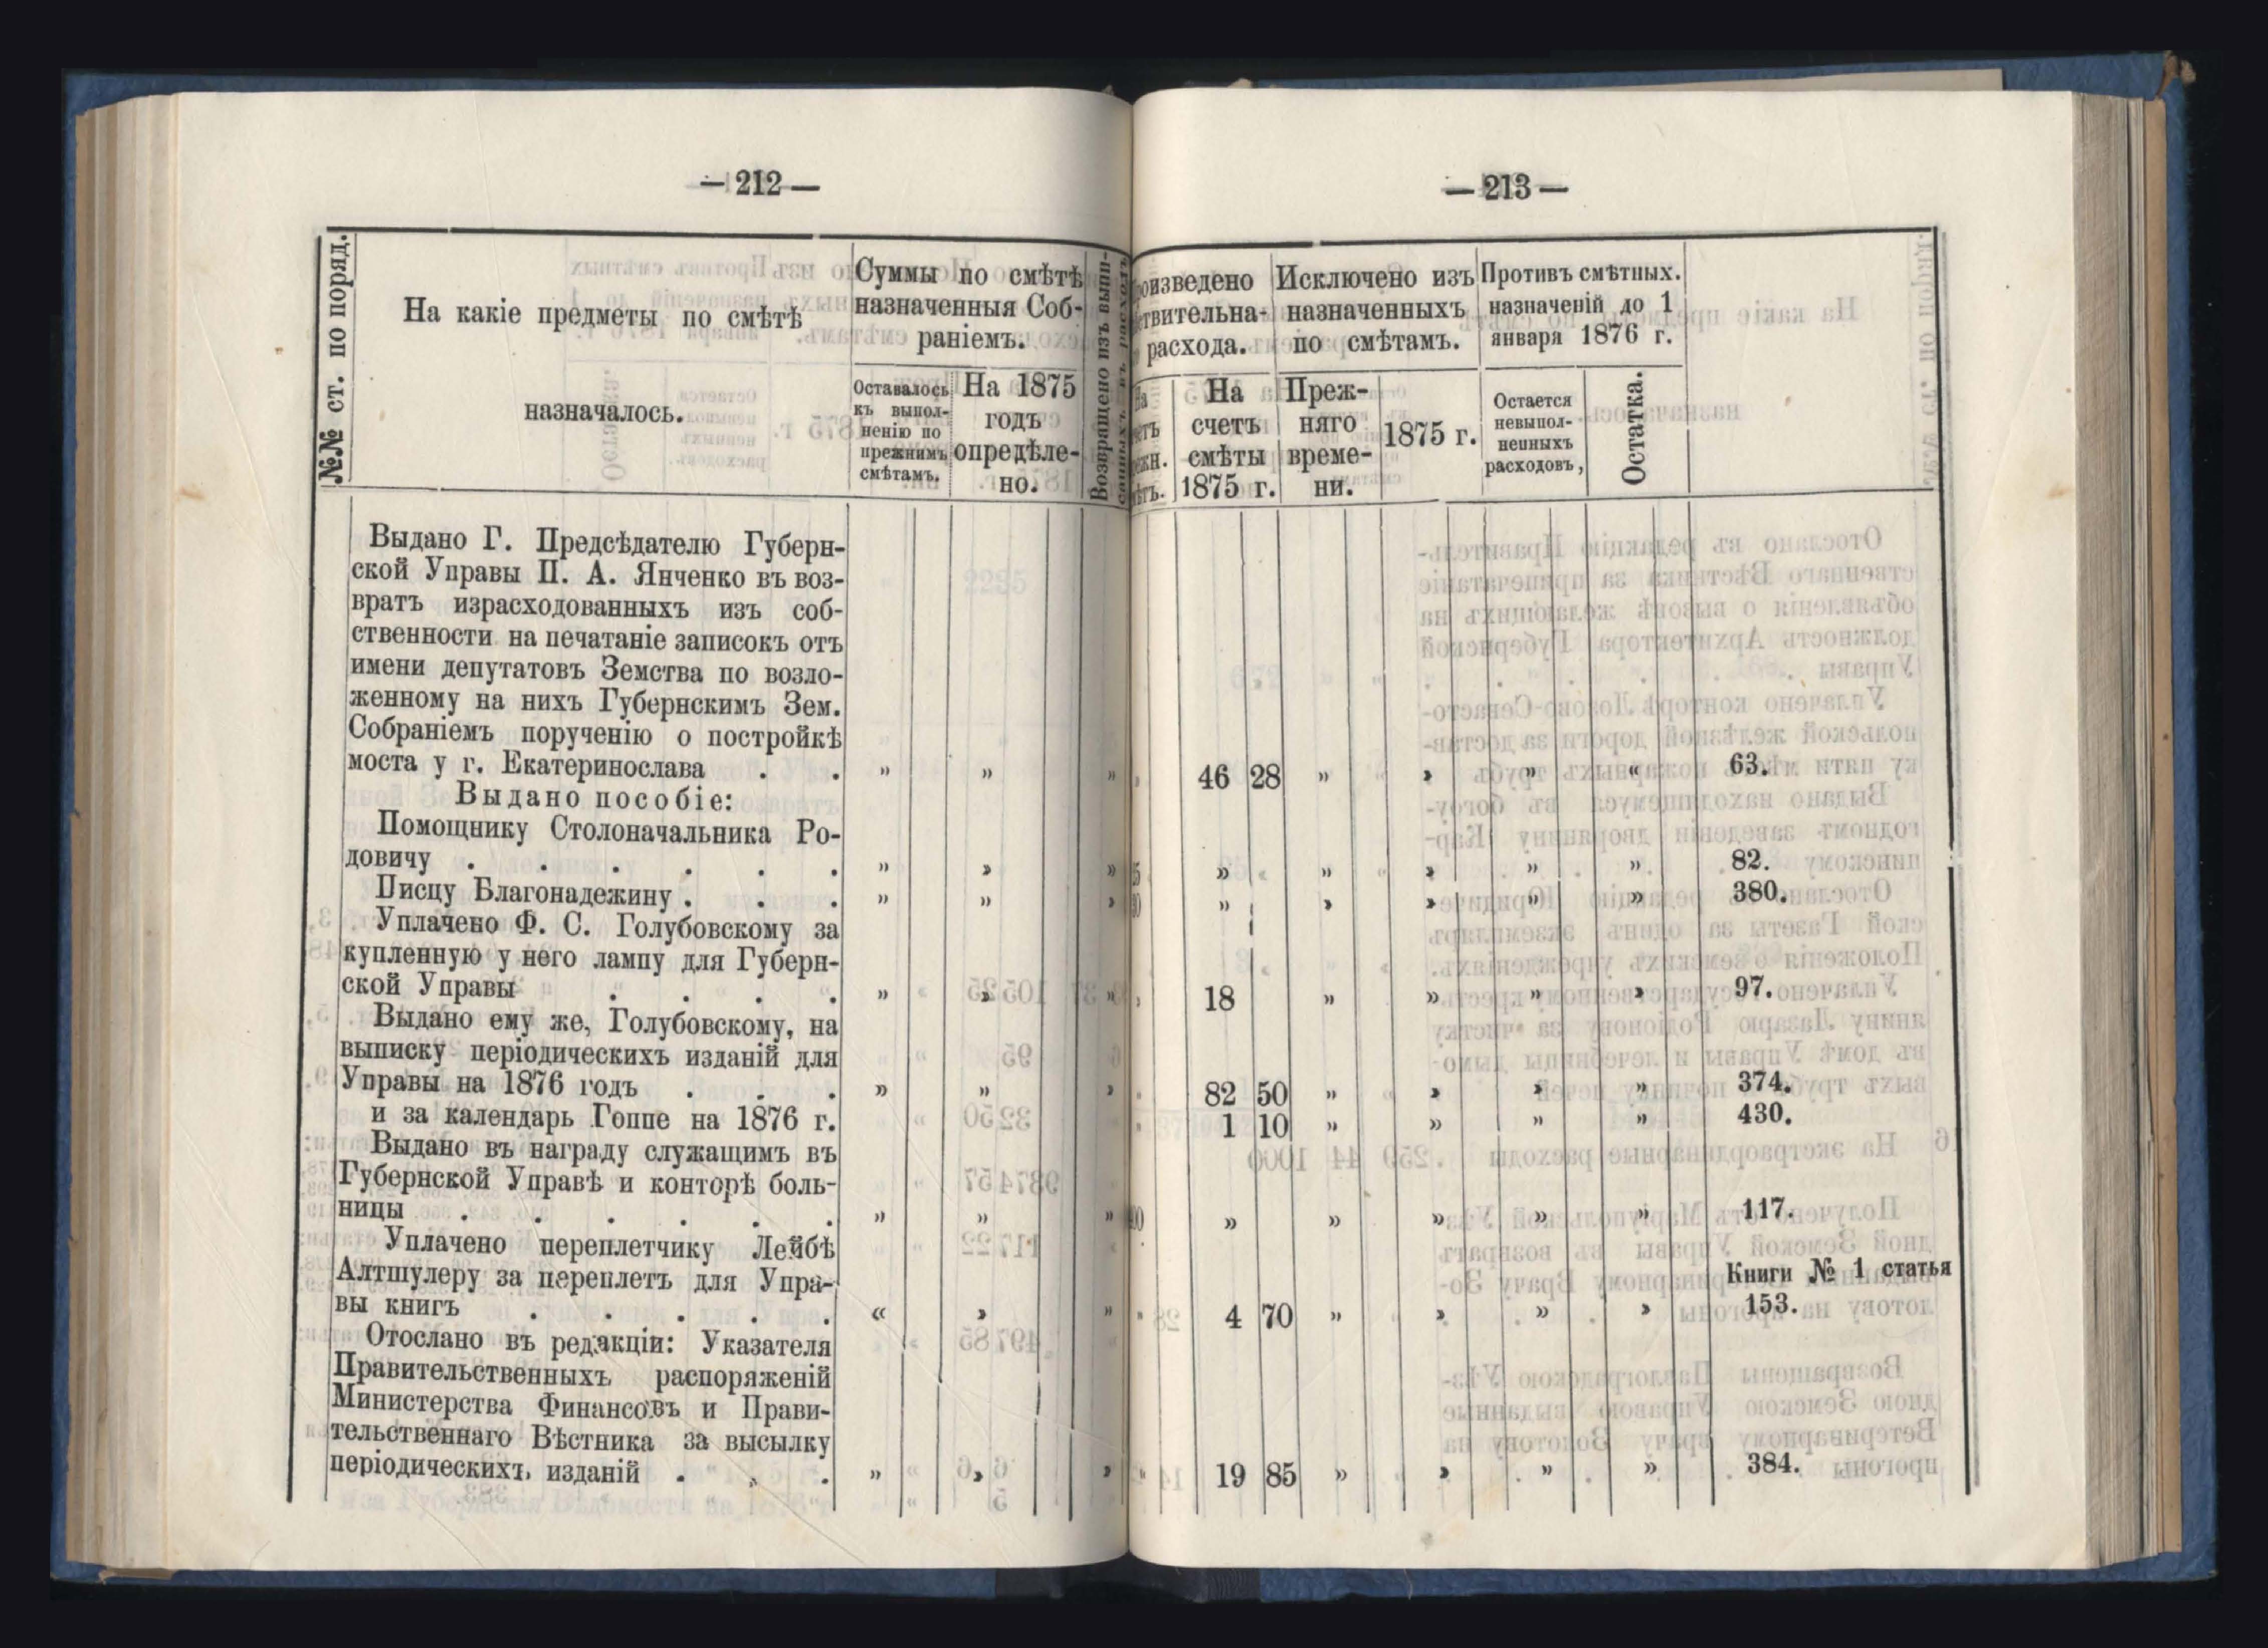 — 212 —
№№ ст. по поряд.
На какіе предметы по смѣтѣ
назначалось.
Суммы по смѣтѣ
назначенныя Соб-
раніемъ.
Оставалось
къ выпол-
ненію по
прежнимъ
смѣтамъ.
На 1875
годъ
опредѣле-
но.
Возвращено изъ выпи-
Выдано Г. Предсѣдателю Губерн-
ской Управы П. А. Янченко въ воз-
вратъ израсходованныхъ изъ соб-
ственности на печатаніе записокъ отъ
имени депутатовъ Земства по возло-
женному на нихъ Губернскимъ Зем.
Собраніемъ порученію о постройкѣ
моста у г. Екатеринослава . . „ „ „
Выдано пособіе:
Помощнику Столоначальника Ро-
довичу . . . . . . „ „ „
Писцу Благонадежину . . . „ „ „
Уплачено Ф. С. Голубовскому за
купленную у него лампу для Губерн-
ской Управы . . . . „ „ „
Выдано ему же, Голубовскому, на
выписку періодическихъ изданій для
Управы на 1876 годъ . . . „ „ „
и за календарь Гоппе на 1876 г.
Выдано въ награду служащимъ въ
Губернской Управѣ и конторѣ боль-
ницы . . . . . . „ „ „
Уплачено переплетчику Лейбѣ
Алтшулеру за переплетъ для Упра-
вы книгъ . . . . . « „ „
Отослано въ редакціи: Указателя
Правительственныхъ распоряженій
Министерства Финансовъ и Прави-
тельственнаго Вѣстника за высылку
періодическихъ изданій . . . „ „ „
— 213 —
оизведено
твительна-
расхода.
На
счетъ
смѣты
1875 г.
Исключено изъ
назначенныхъ
по смѣтамъ.
Преж-
няго
време-
ни.
1875 г.
Противъ смѣтныхъ.
назначеній до 1
января 1876 г.
Остается
невыпол-
ненныхъ
расходовъ,
Остатка.
46 28 „ „ „ « 63.
„ „ „ „ „ 82.
„ „ „ „ „ 380.
18 „ „ „ „ 97.
82 50 „ „ „ „ 374.
1 10 „ „ „ „ 430.
„ „ „ „ „ 117.
Книги № 1 статья
4 70 „ „ „ „ 153.
19 85 „ „ „ „ 384.